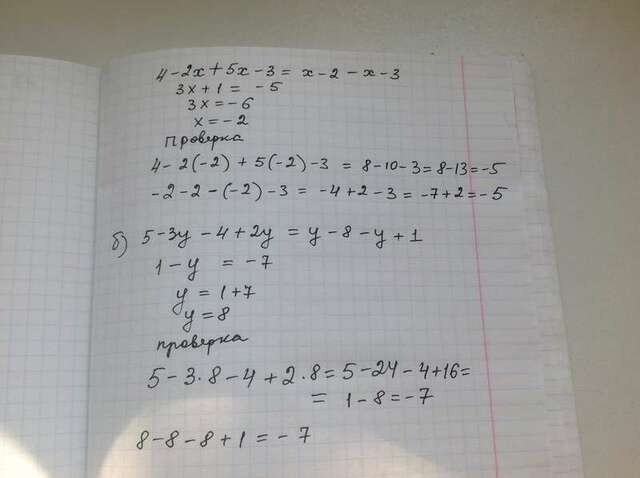 4-2x+5x-3= x-2-x-3
3x+1= -5
3x=-6
x=-2
проверка
4-2(-2)+5(-2)-3 = 8-10-3=8-13=-5
-2-2-(-2)-3 = -4+2-3=-7+2=-5
б) 5-3y-4+2y = y-8-y+1
1-y = -7
y = 1+7
y=8
проверка
5-3·8-4+2·8=5-24-4+16=
= 1-8=-7
8-8-8+1=-7